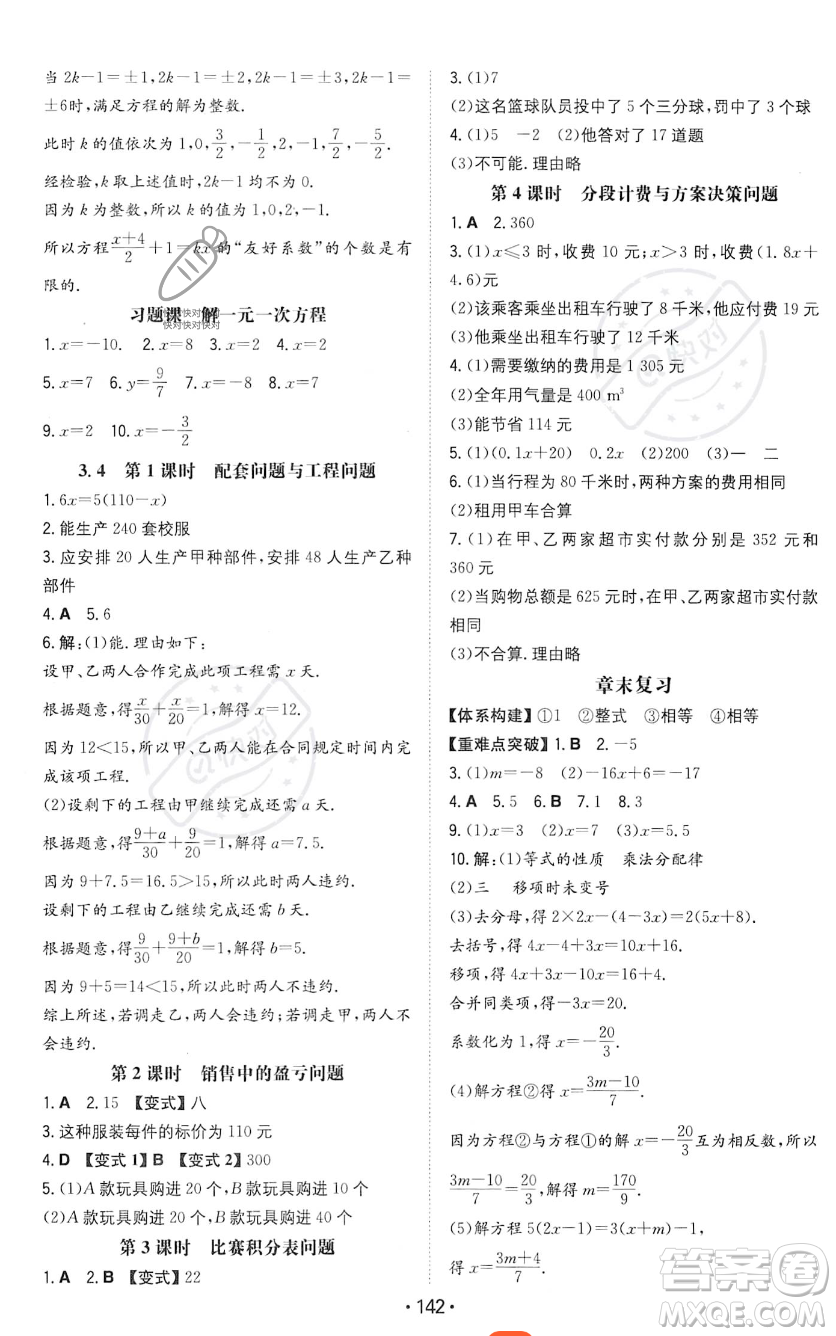 当 2k−1=±1,2k−1=±2,2k−1=±3,2k−1=
±6时,满足方程的解为整数.
此时 k 的值依次为 1,0,3/2,−1/2,2,−1,7/2,−5/2.
经检验,k 取上述值时,分母不为零.
因为 k 为整数,所以 k=1,0,2,−1.
所以方程(x+4)/2+1=kx的“友好系数”的个数是有
限的.
习题课 解一元一次方程
1.x=−10. 2.x=8 3.x=2 4.x=2
5.x=7 6.y=9/7 7.x=−3 8.x=7
9.x=2 10.x=−3/2
3.4 第 1 课时 配套问题与工程问题
1.6x=5(110−x)
2.能生产 240 套校服
3.应安排 20 人生产甲种部件,安排 48 人生产乙种
部件
4.A 5.6
6.解:(1)能.理由如下:
设甲、乙两人合作完成此项工程需 x 天.
根据题意,得x/30+x/20=1,解得 x=12.
因为 12<15,所以甲、乙两人能在合同规定时间内完
成该项工程.
(2)设剩下的工程由甲继续完成还需 a 天.
根据题意,得(9+a)/30+9/20=1,解得 a=7.5.
因为 9+7.5=16.5>15,所以此时两人违约.
设剩下的工程由乙继续完成还需 b 天.
根据题意,得9/30+(9+b)/20=1,解得 b=5.
因为 9+5=14<15,所以此时两人不违约.
综上所述,若调走乙,两人会违约;若调走甲,两人不
会违约.
第 2 课时 销售中的盈亏问题
1.A 2.15 【变式】八
3.这种服装每件的标价为 110 元
4.D 【变式 1】B 【变式 2】300
5.(1)A 款玩具购进 20 个,B 款玩具购进 10 个
(2)A 款玩具购进 20 个,B 款玩具购进 40 个
第 3 课时 比赛积分表问题
1.A 2.B 【变式】22
3.(1)7
(2)这名篮球队员投中了 5 个三分球,罚中了 3 个球
4.(1)5 −2 (2)他答对了 17 道题
(3)不可能.理由略
第 4 课时 分段计费与方案决策问题
1.A 2.360
3.(1)x≤3 时,收费 10 元;x>3 时,收费(1.8x+
4.6)元
(2)该乘客乘坐出租车行驶了 8 千米,他应付费 19 元
(3)他乘坐出租车行驶了 12 千米
4.(1)需要缴纳的费用是 1 305 元
(2)全年用气量是 400 m³
(3)能节省 114 元
5.(1)(0.1x+20) 0.2x (2)200 (3)一 二
6.(1)当行程为 80 千米时,两种方案的费用相同
(2)租用甲车合算
7.(1)在甲、乙两家超市实付款分别是 352 元和
360 元
(2)当购物总额是 625 元时,在甲、乙两家超市实付款
相同
(3)不合算.理由略
章末复习
【体系构建】①1 ②整式 ③相等 ④相等
【重难点突破】1.B 2.−5
3.(1)m=−8 (2)−16x+6=−17
4.A 5.5 6.B 7.1 8.3
9.(1)x=3 (2)x=7 (3)x=5.5
10.解:(1)等式的性质 乘法分配律
(2)三 移项时未变号
(3)去分母,得 2×2x−(4−3x)=2(5x+8).
去括号,得 4x−4+3x=10x+16.
移项,得 4x+3x−10x=16+4.
合并同类项,得−3x=20.
系数化为 1,得 x=−20/3.
(4)解方程②得 x=(3m−10)/7.
因为方程②与方程①的解 x=−20/3互为相反数,所以
(3m−10)/7=20/3,解得 m=170/9.
(5)解方程 5(2x−1)=3(x+m)−1,
得 x=(3m+4)/7.
·142·
快对快对快对
快对快对快对
快对
快对
答案卷
MXQE.COM